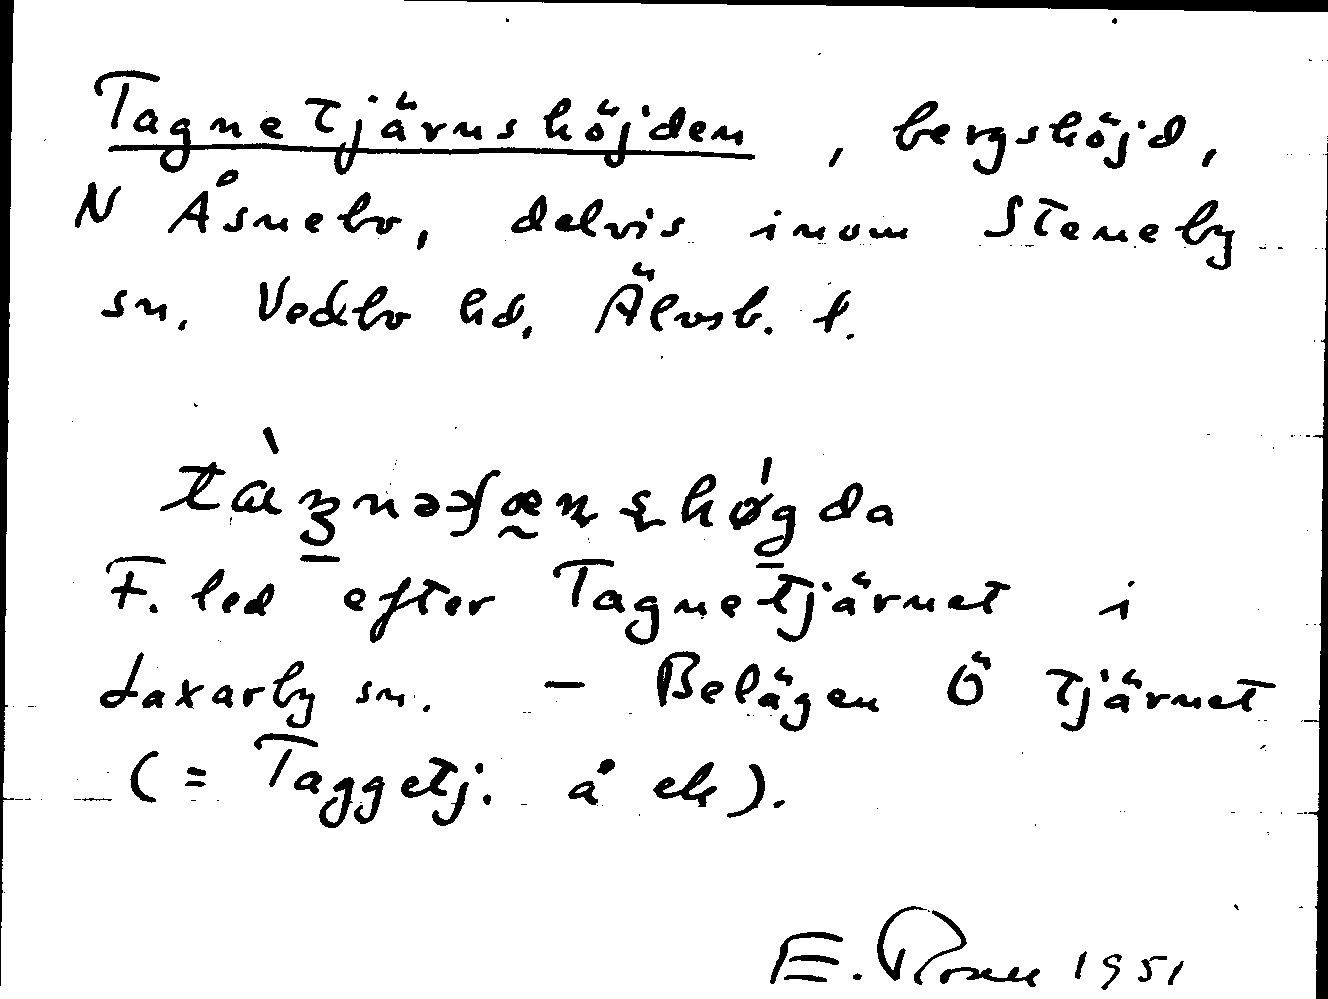 Tagnetjärnshöjden, bergshöjd,
N Åsnebo, delvis inom Steneby
sn. Vedbo hd, Älvsb. l.
F. led efter Tagnetjärnet i
Laxarby sn. — Belägen Ö tjärnet
(= Taggetj. å ek).
E. 1951